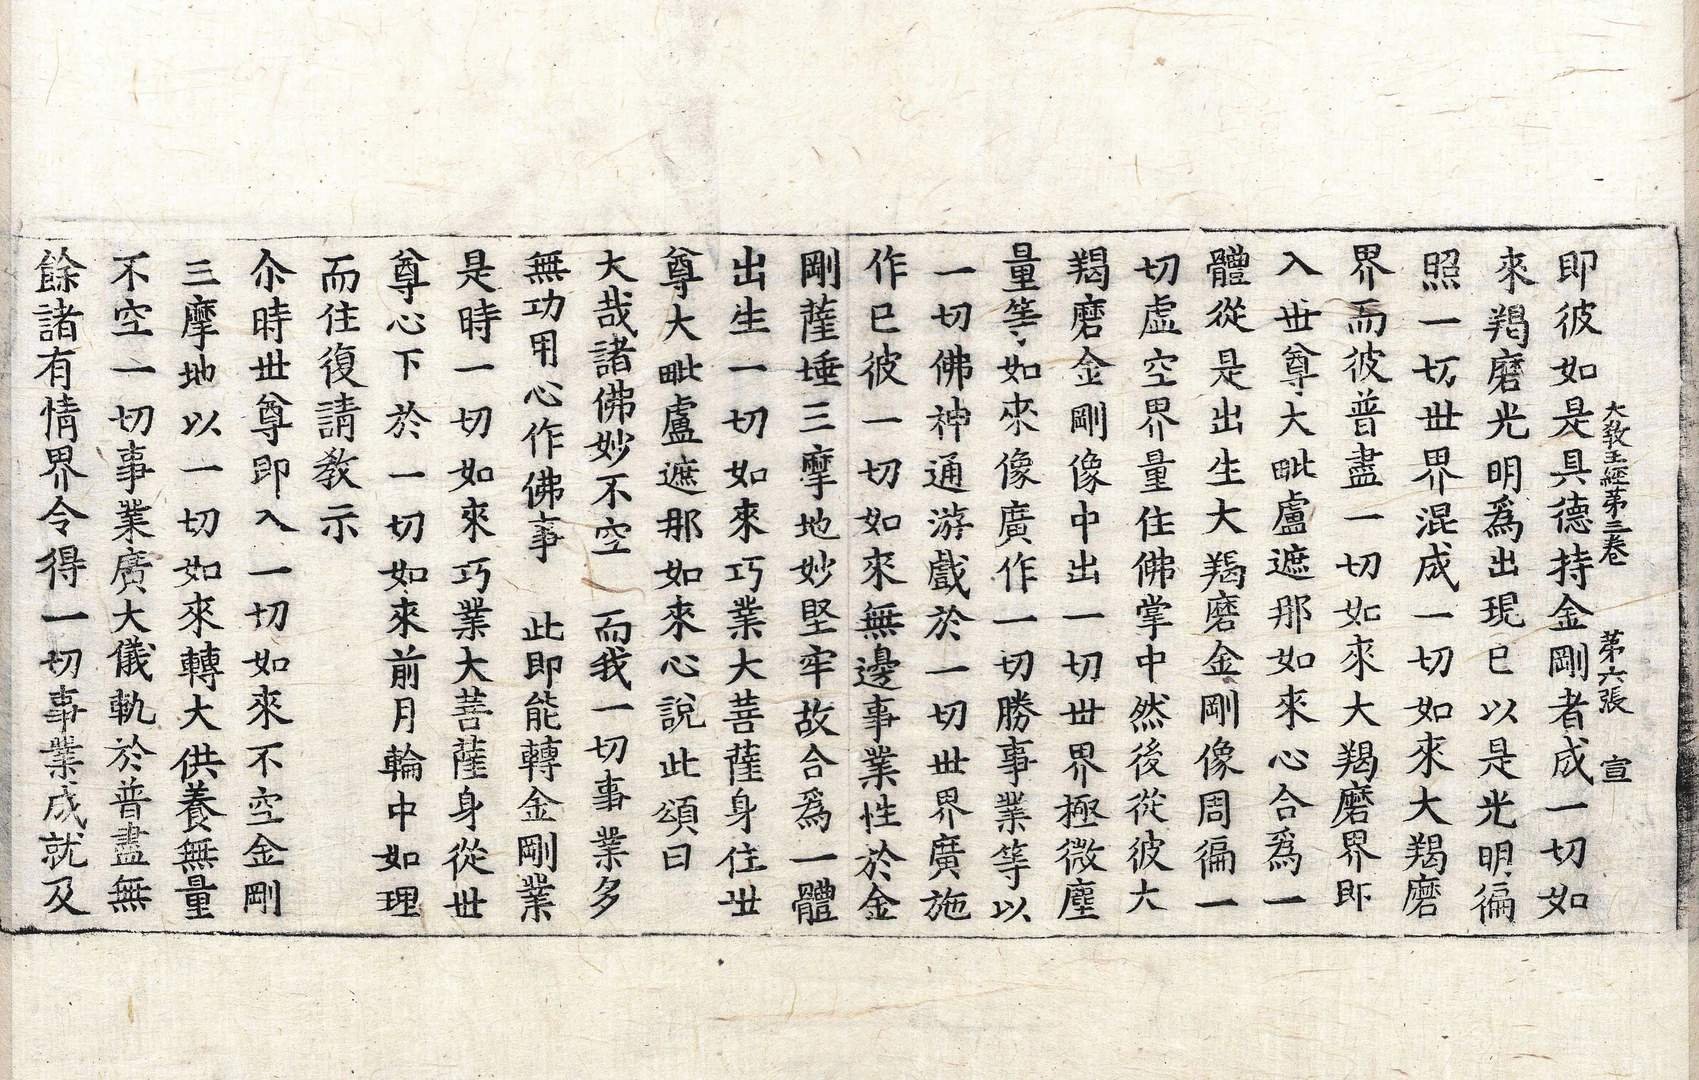 大教王經第三卷　第六張　宣
即彼如是具德持金剛者成一切如
來羯磨光明爲出現已以是光明徧
照一切世界混成一切如來大羯磨
界而彼普盡一切如來大羯磨界即
入世尊大毗盧遮那如來心合爲一
體從是出生大羯磨金剛像周徧一
切虛空界量住佛掌中然後從彼大
羯磨金剛像中出一切世界極微塵
量等如來像廣作一切勝事業等以
一切佛神通游戲於一切世界廣施
作已彼一切如來無邊事業性於金
剛薩埵三摩地妙堅牢故合爲一體
出生一切如來巧業大菩薩身住世
尊大毗盧遮那如來心說此頌曰
大哉諸佛妙不空　而我一切事業多
無功用心作佛事　此即能轉金剛業
是時一切如來巧業大菩薩身從世
尊心下於一切如來前月輪中如理
而住復請教示
尒時世尊即入一切如來不空金剛
三摩地以一切如來轉大供養無量
不空一切事業廣大儀軌於普盡無
餘諸有情界令得一切事業成就及